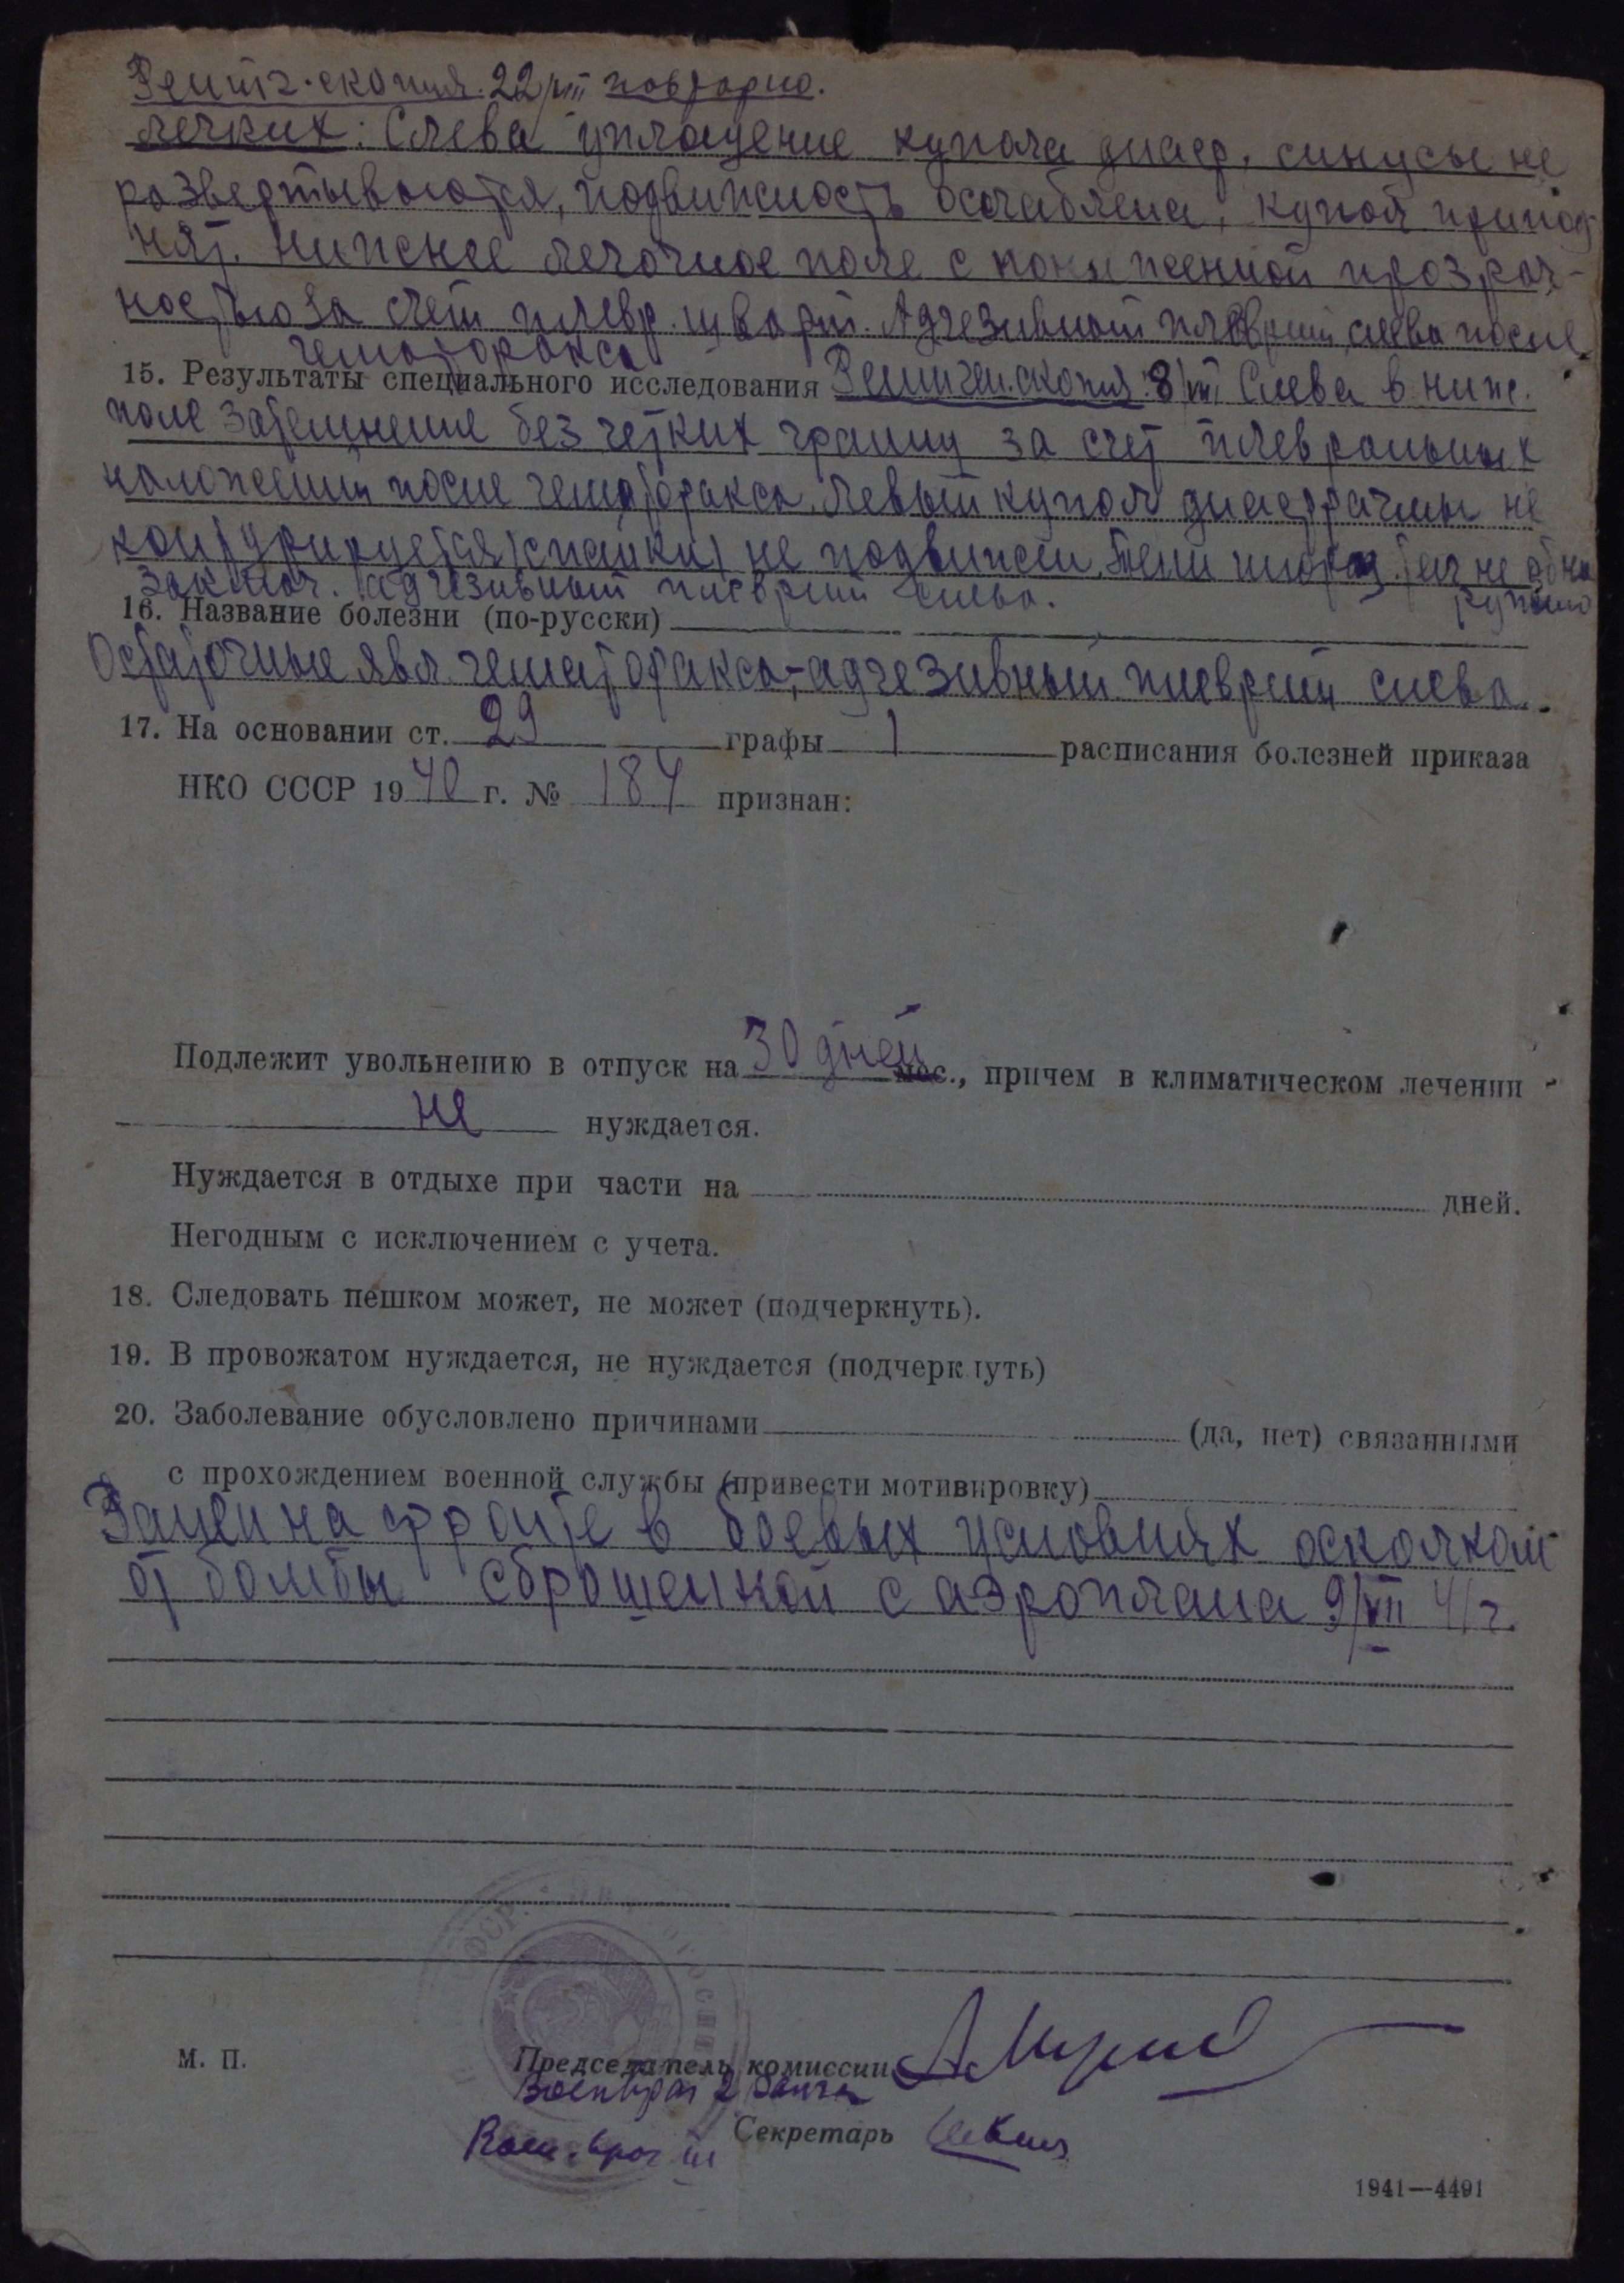 Рентг.скопия. 22/VIII повторно.
легких: Слева уплощение купола диафр. синусы не
развертываются, подвижность ослаблена, купол припод
нят. нижнее легочное поле с пониженной прозрач-
ностью за счет плевр. шварт. Адгезивный плеврит слева после
гематоракса
15. Результаты специального исследования Рентген.скопия 8/VIII Слева в ниж.
поле затемнение без четких границ за счет плевральных
наложений после гематоракса. Левый купол диафрагмы не
контурируется (спайки) не подвижен. Тени инород. тел не обна
ружено
Заключ. Адгезивный плеврит слева.
16. Название болезни (по-русски)
Остаточные явл. гематоракса, - адгезивный плеврит слева.
17. На основании ст. 29 графы 1 расписания болезней приказа
НКО СССР 1940 г. № 184 признан:
Подлежит увольнению в отпуск на 30 дней мес., причем в климатическом лечении
не нуждается.
Нуждается в отдыхе при части на дней.
Негодным с исключением с учета.
18. Следовать пешком может, не может (подчеркнуть).
19. В провожатом нуждается, не нуждается (подчеркнуть)
20. Заболевание обусловлено причинами (да, нет) связанными
с прохождением военной службы (привести мотивировку)
Ранен на фронте в боевых условиях осколком
от бомбы сброшенной с аэроплана 9/VII 41 г.
М. П.
Председатель комиссии
Военврач 2 ранга
Секретарь
Воен. врач III
1941—4491